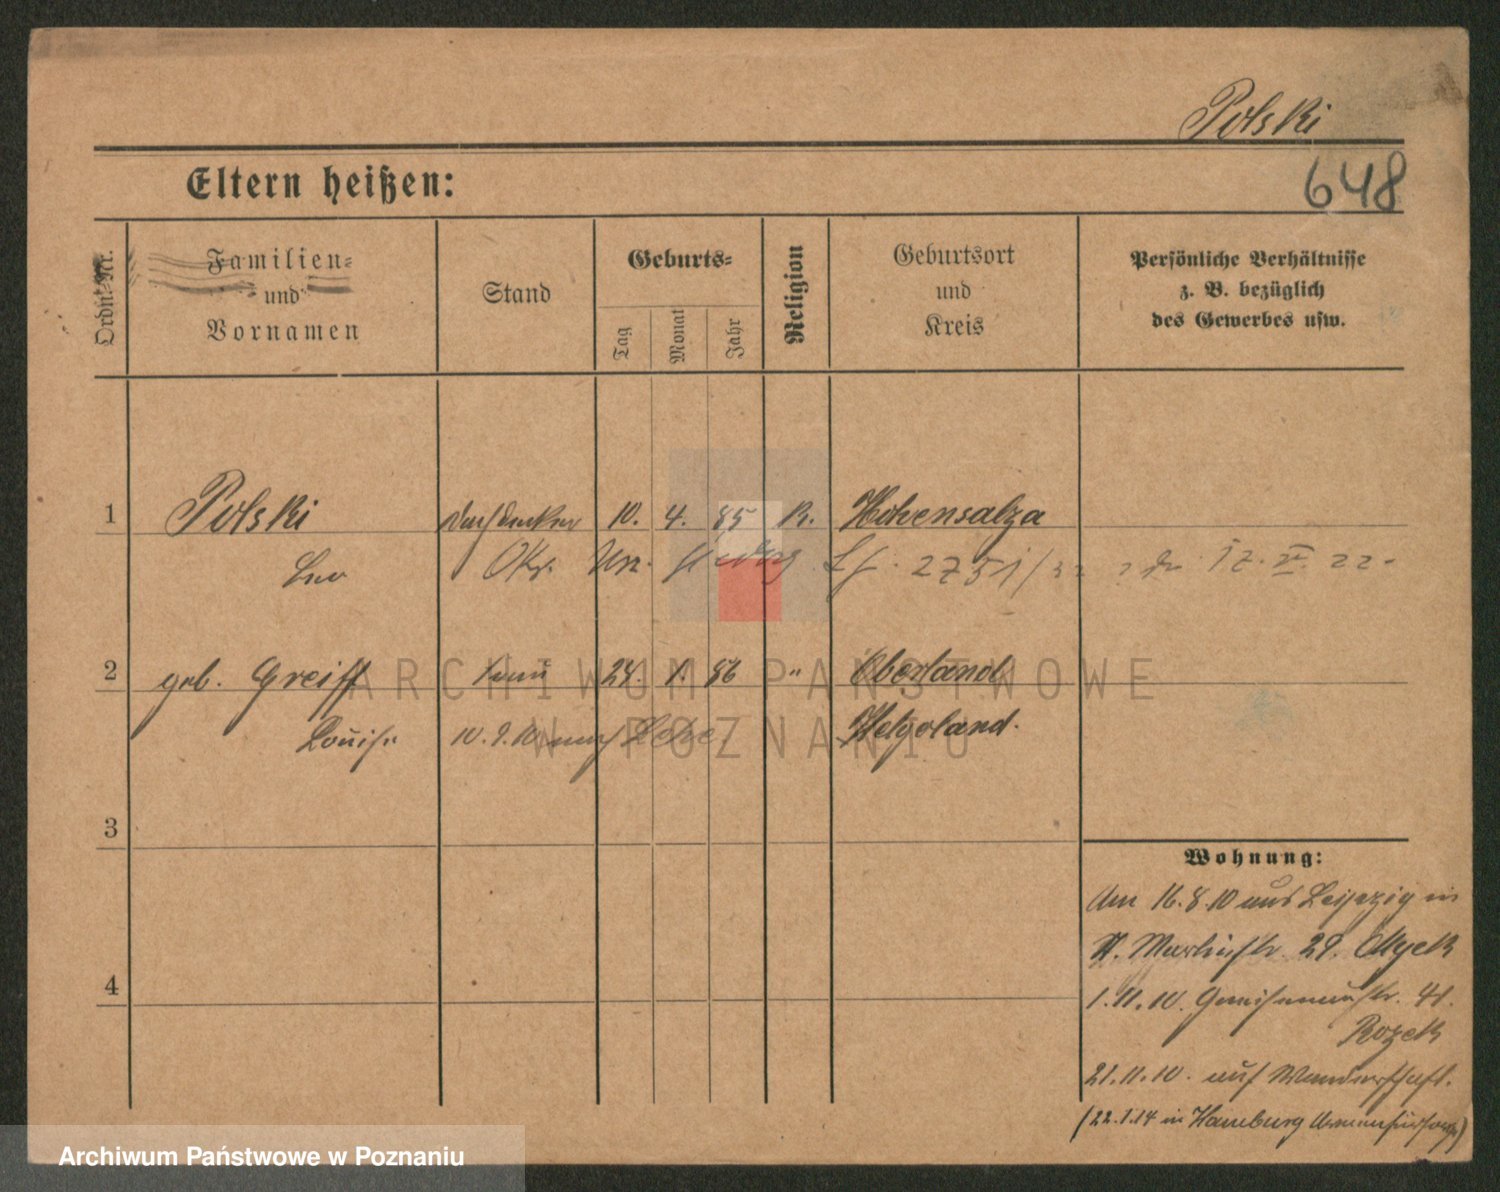 Polski
648
Eltern heißen:
Ordn.-Nr.
Familien-
und
Vornamen
Stand
Geburts-
Tag
Monat
Jahr
Religion
Geburtsort
und
Kreis
Persönliche Verhältnisse
z. B. bezüglich
des Gewerbes usw.
1 Polski Dachdecker 10. 4. 85 K. Hohensalza
Leo 2751/22
2 geb. Greiff Frau 24. 1. 86 " Oberland
Louise 10.9.10 nach Helgoland.
ARCHIWUM PAŃSTWOWE
W POZNANIU
3
4
Wohnung:
Am 16.8.10 aus Leipzig in
St. Martinstr. 29.
1.11.10. Gneisenaustr. 41.
Rozek
21.11.10. auf Wanderschaft.
(22.1.14 in Hamburg
Archiwum Państwowe w Poznaniu